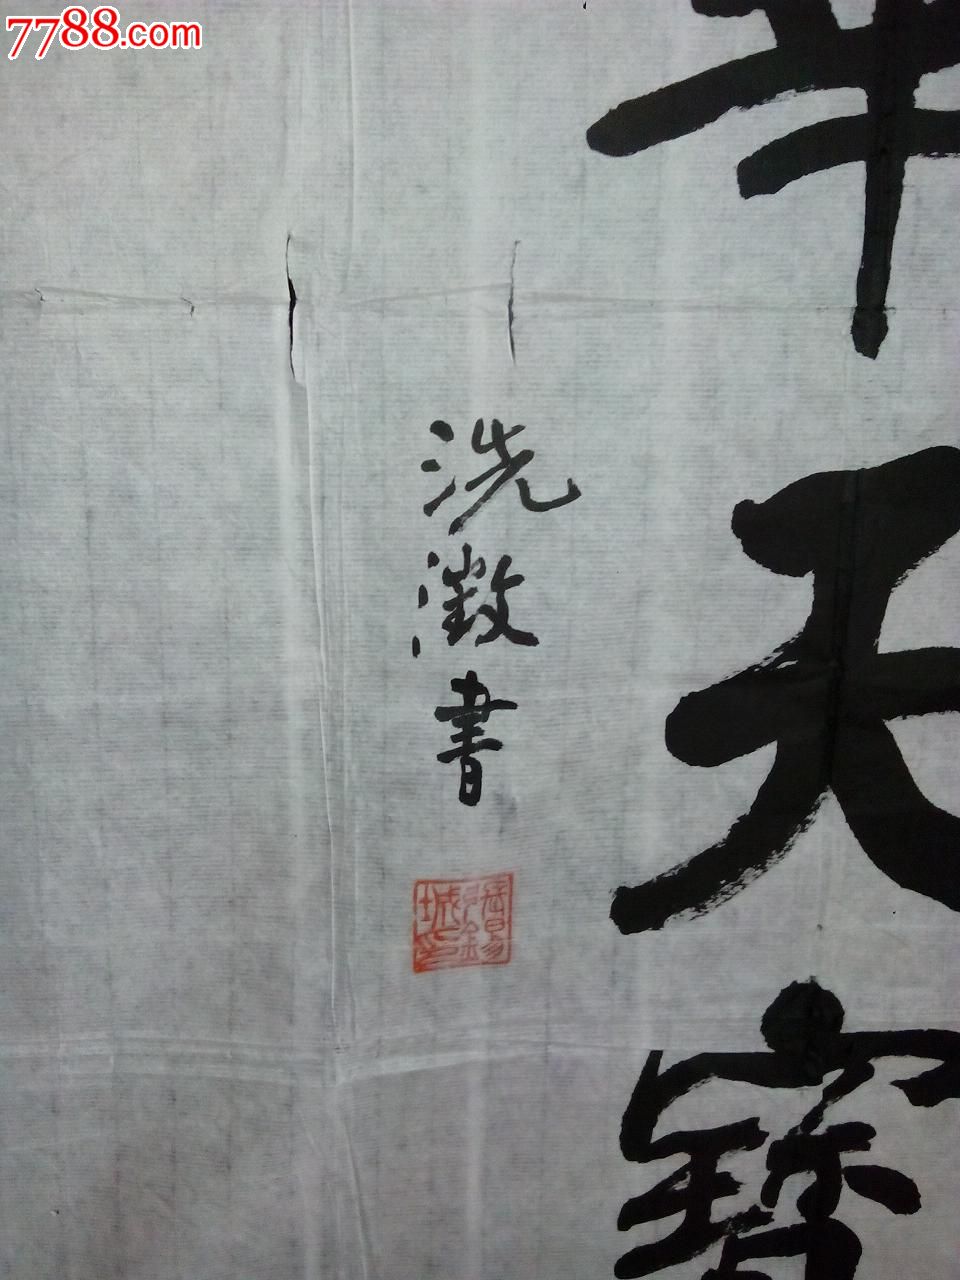 7788.com
華天寶
洗澂書